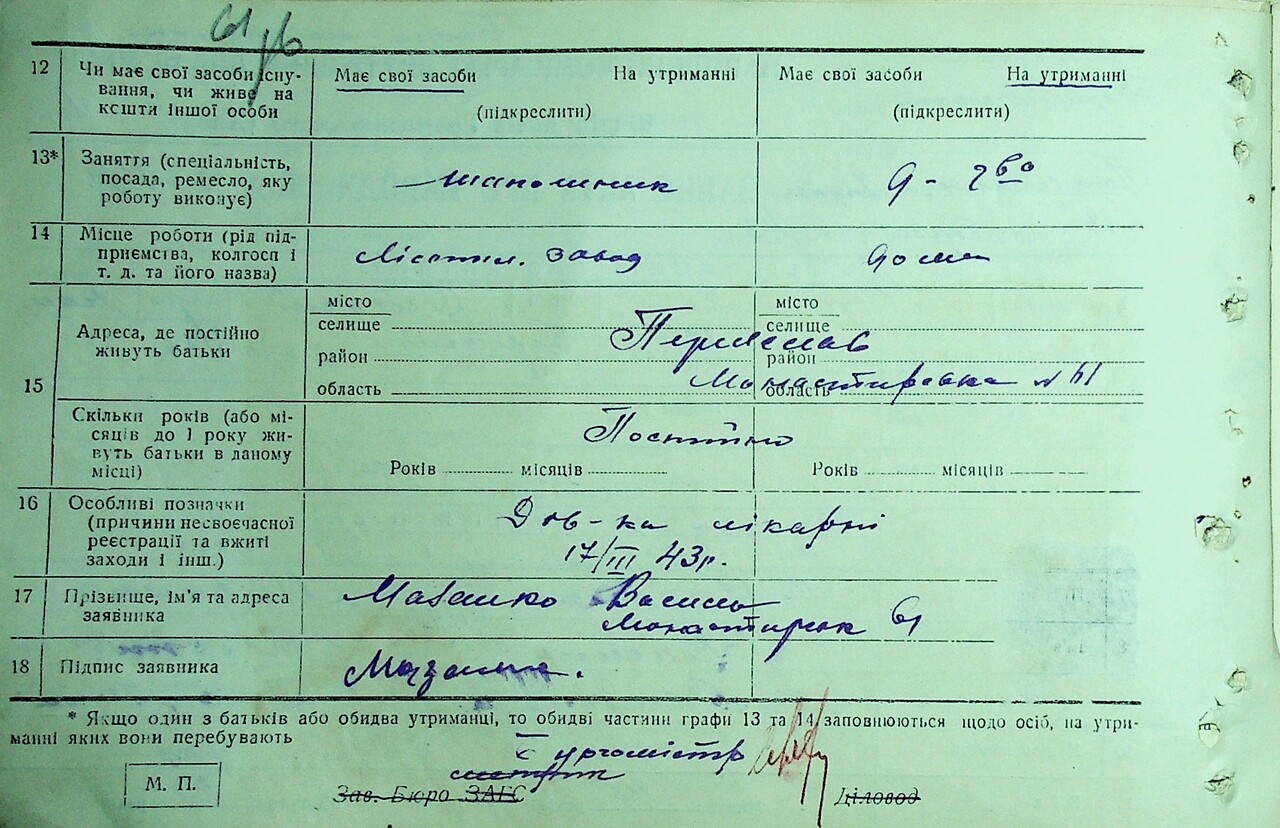 61
12 Чи має свої засоби існу-
вання, чи живе на
кошти іншої особи
Має свої засоби На утриманні
(підкреслити)
Має свої засоби На утриманні
(підкреслити)
13* Заняття (спеціальність,
посада, ремесло, яку
роботу виконує)
шапошник
д-гво
14 Місце роботи (рід під-
приємства, колгосп і
т. д. та його назва)
завод
дома
15 Адреса, де постійно
живуть батьки
місто
селище
район
область
місто
селище
район
область
Переяслав
Монастирська № 61
Скільки років (або мі-
сяців до 1 року жи-
вуть батьки в даному
місці)
Постійно
Років місяців
Років місяців
16 Особливі позначки
(причини несвоєчасної
реєстрації та вжиті
заходи і інш.)
Дов-ка лікарні
17/III 43р.
17 Прізвище, ім'я та адреса
заявника
Мазанко Василь
Монастирськ 61
18 Підпис заявника
Мазанко.
* Якщо один з батьків або обидва утриманці, то обидві частини графи 13 та 14 заповнюються щодо осіб, на утри-
манні яких вони перебувають
Бургомістр
М. П.
Зав. Бюро ЗАГС
Діловод